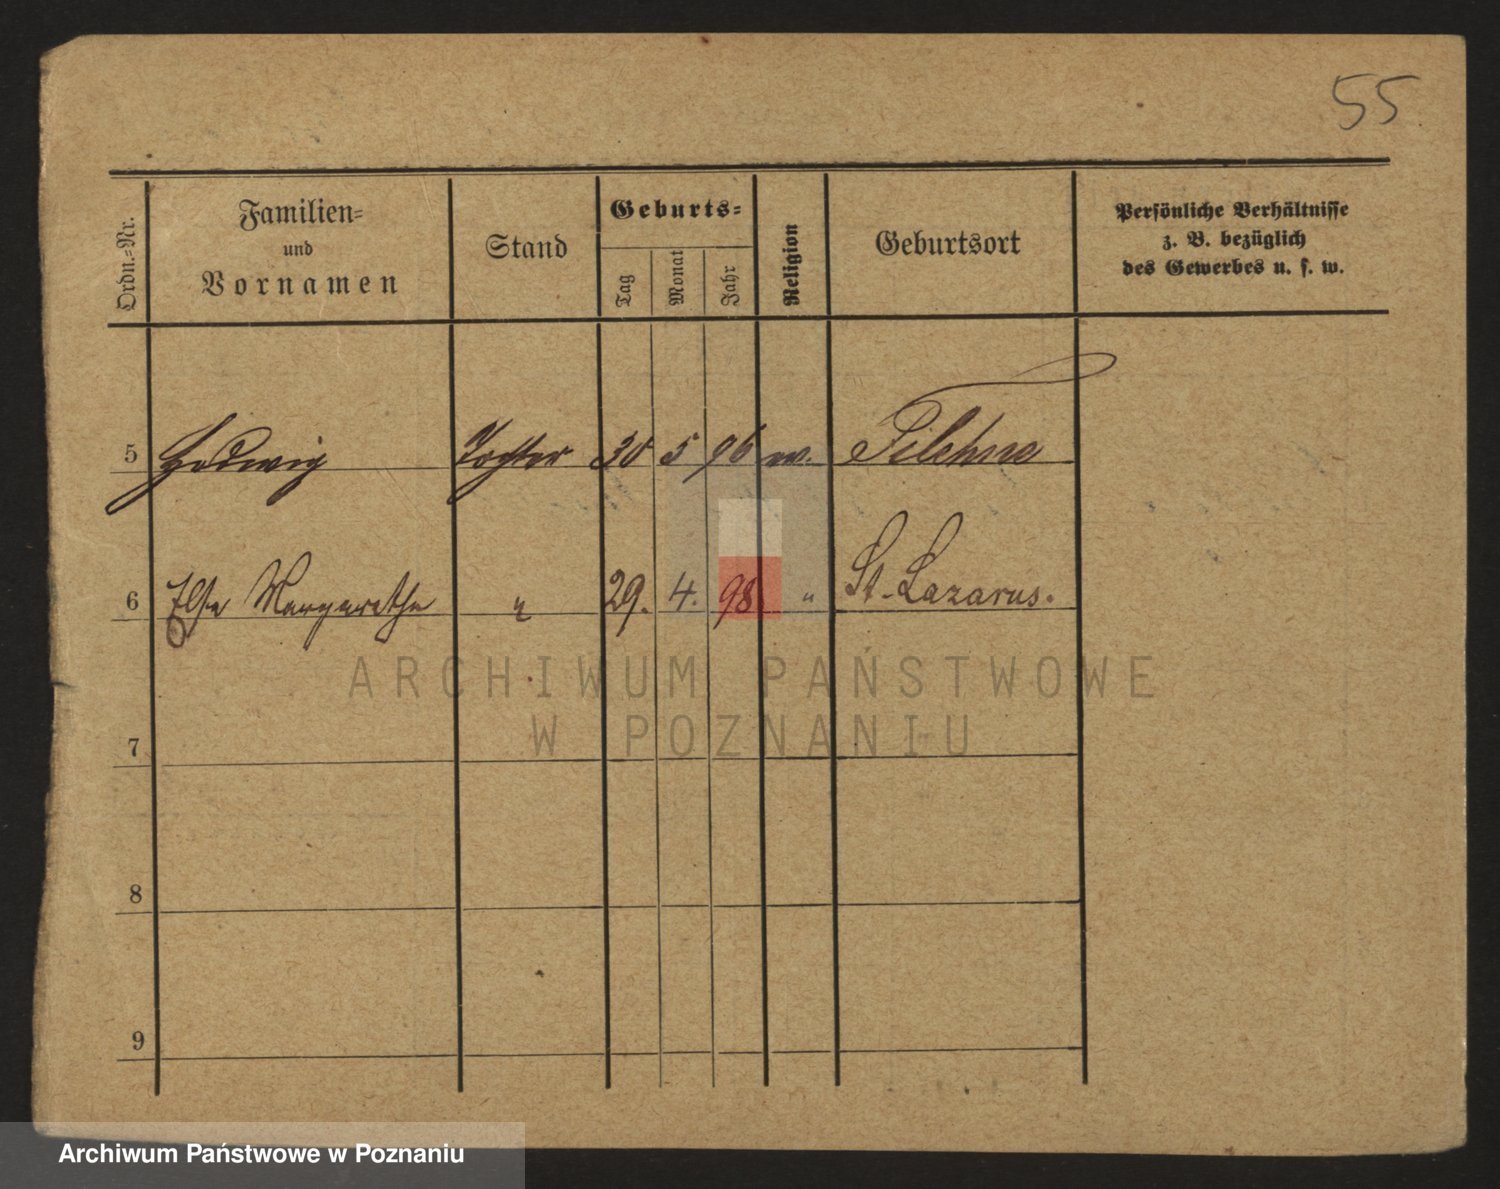 55
Ordn.-Nr.
Familien-
und
Vornamen
Stand
Geburts-
Tag
Monat
Jahr
Religion
Geburtsort
Persönliche Verhältnisse
z. B. bezüglich
des Gewerbes u. s. w.
5 Hedwig Tochter 30 5 96 ev. Filehne
6 Else Margarethe " 29. 4. 98 " St. Lazarus.
ARCHIWUM PAŃSTWOWE
W POZNANIU
7
8
9
Archiwum Państwowe w Poznaniu